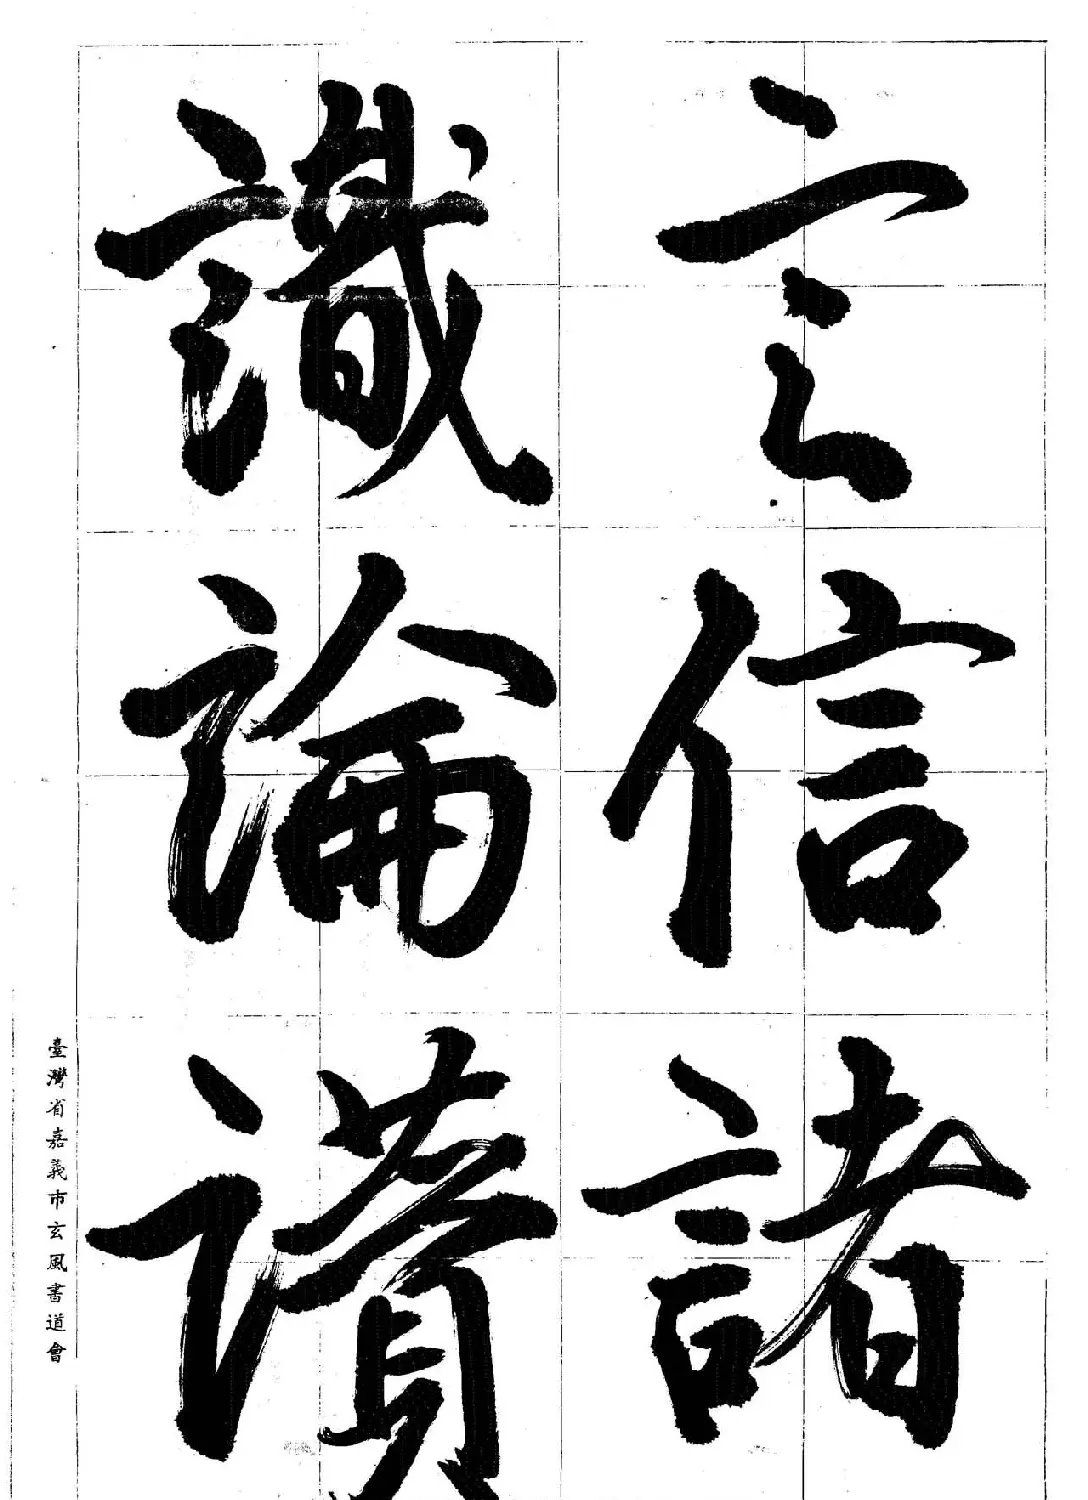 言信諸
識論讀
臺灣省嘉義市玄風書道會